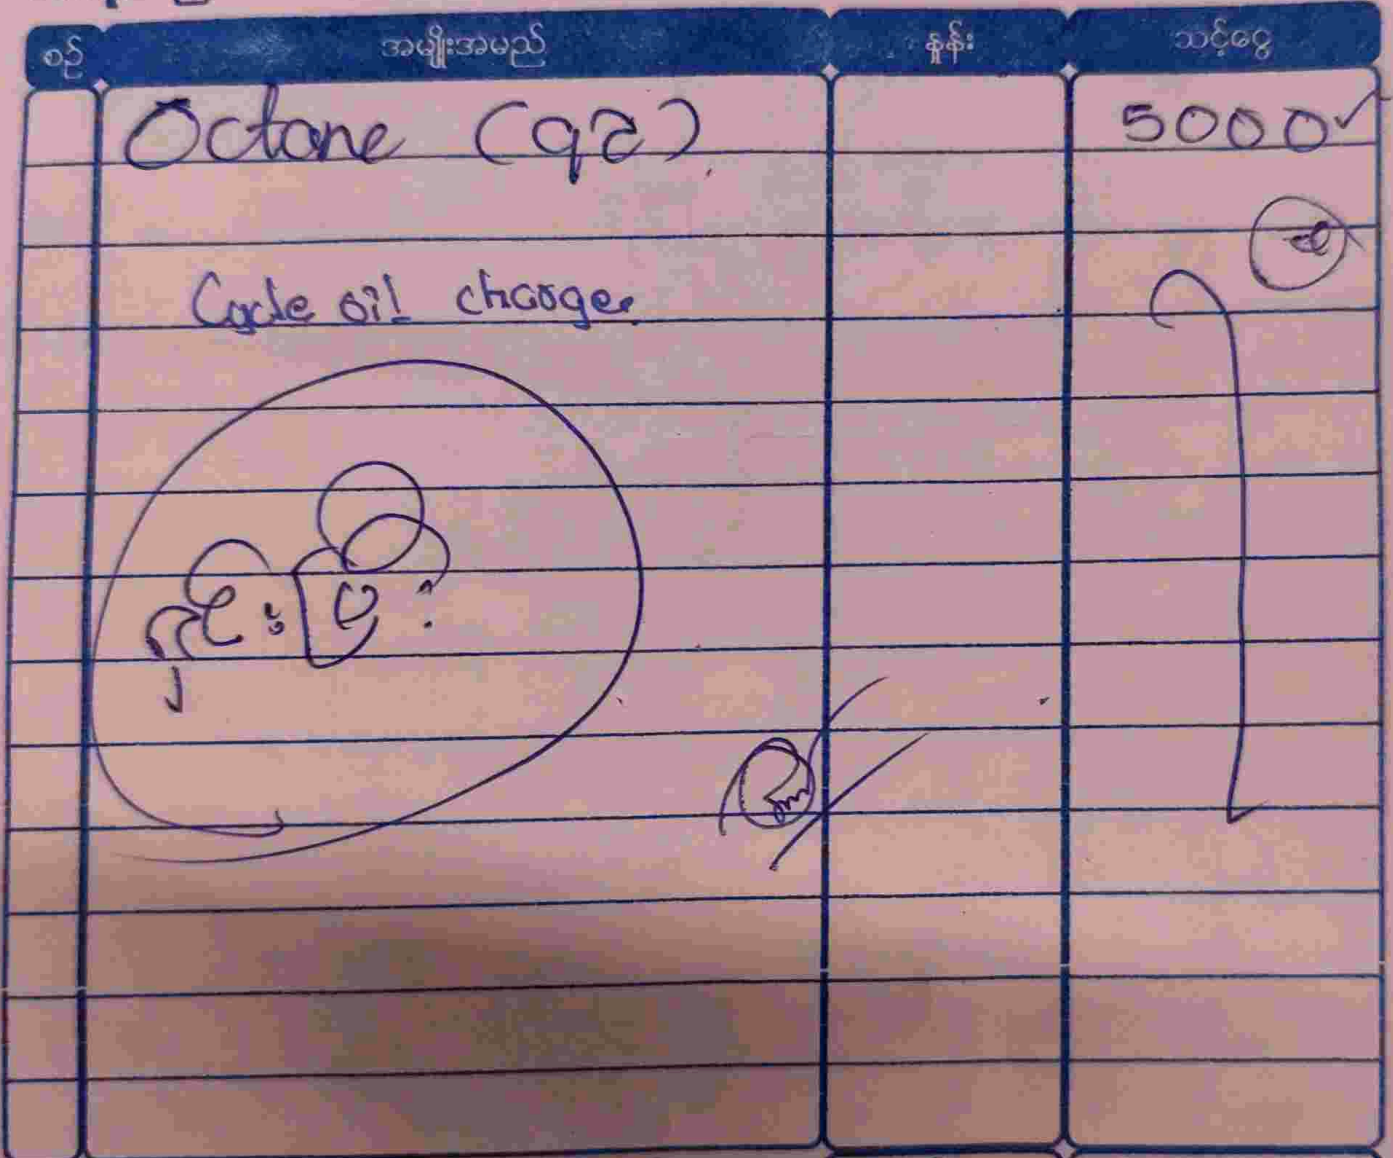 စဉ် အမျိုးအမည် နှုန်း သင့်ငွေ
Octane (92) 5000
Cycle oil change
ရှင်းပြီး